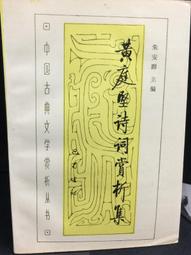 朱安群 主编
黄庭坚诗词赏析集
中国古典文学赏析丛书